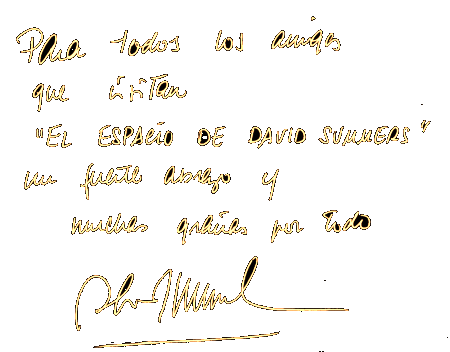 Para todos los amigos
que visitan
"EL ESPACIO DE DAVID SUMMERS"
un fuerte abrazo y
muchas gracias por todo